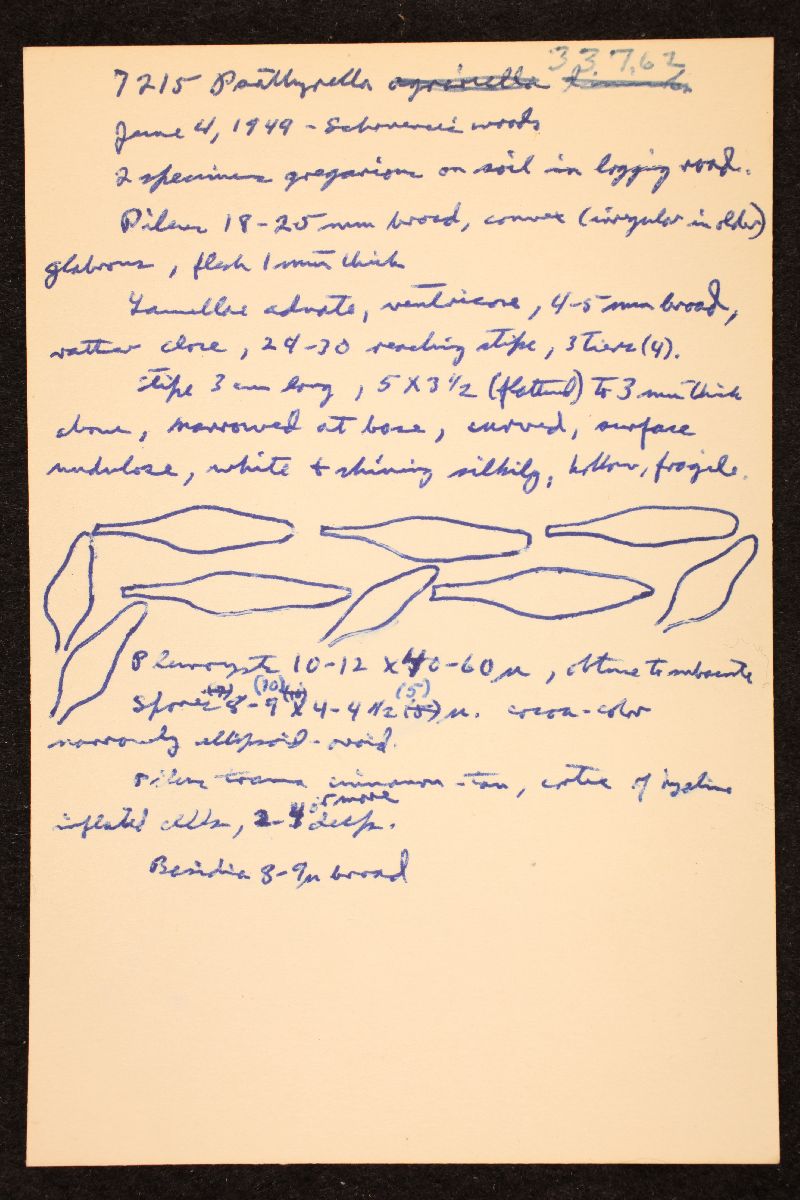 33762
7215 Psathyrella agrariella
June 4, 1949 - woods
2 specimens gregarious on soil in logging road.
Pileus 18-25 mm broad, convex (irregular in older)
glabrous, flesh 1 mm thick
Lamellae adnate, ventricose, 4-5 mm broad,
rather close, 24-30 reaching stipe, 3 tiers (4).
Stipe 3 cm long, 5 X 3 1/2 (flattened) to 3 mm thick
above, narrowed at base, curved, surface
undulose, white + shining silkily, hollow, fragile.
Pleurocysts 10-12 X 40-60 µ, obtuse to subacute
(10) (5)
Spores 8-9 X 4-4 1/2 (5) µ. cocoa-color
narrowly ellipsoid-ovoid.
Pileus trama cinnamon-tan, cutis of hyaline
or more
inflated cells, 2-4 deep.
Basidia 8-9µ broad